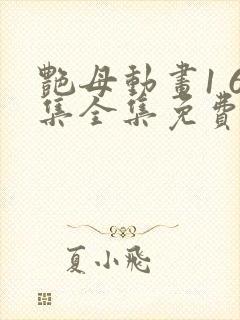 艷母動畫16
集全集免費
夏小飛